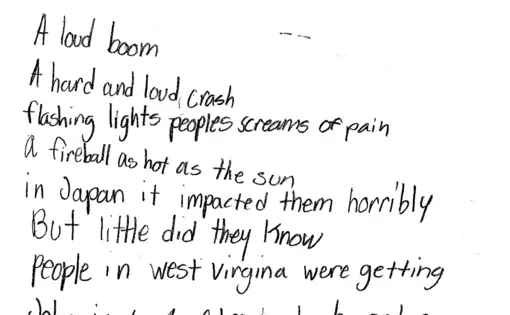 A loud boom
A hard and loud crash
flashing lights peoples screams of pain
a fireball as hot as the sun
in Japan it impacted them horribly
But little did they know
people in west virgina were getting